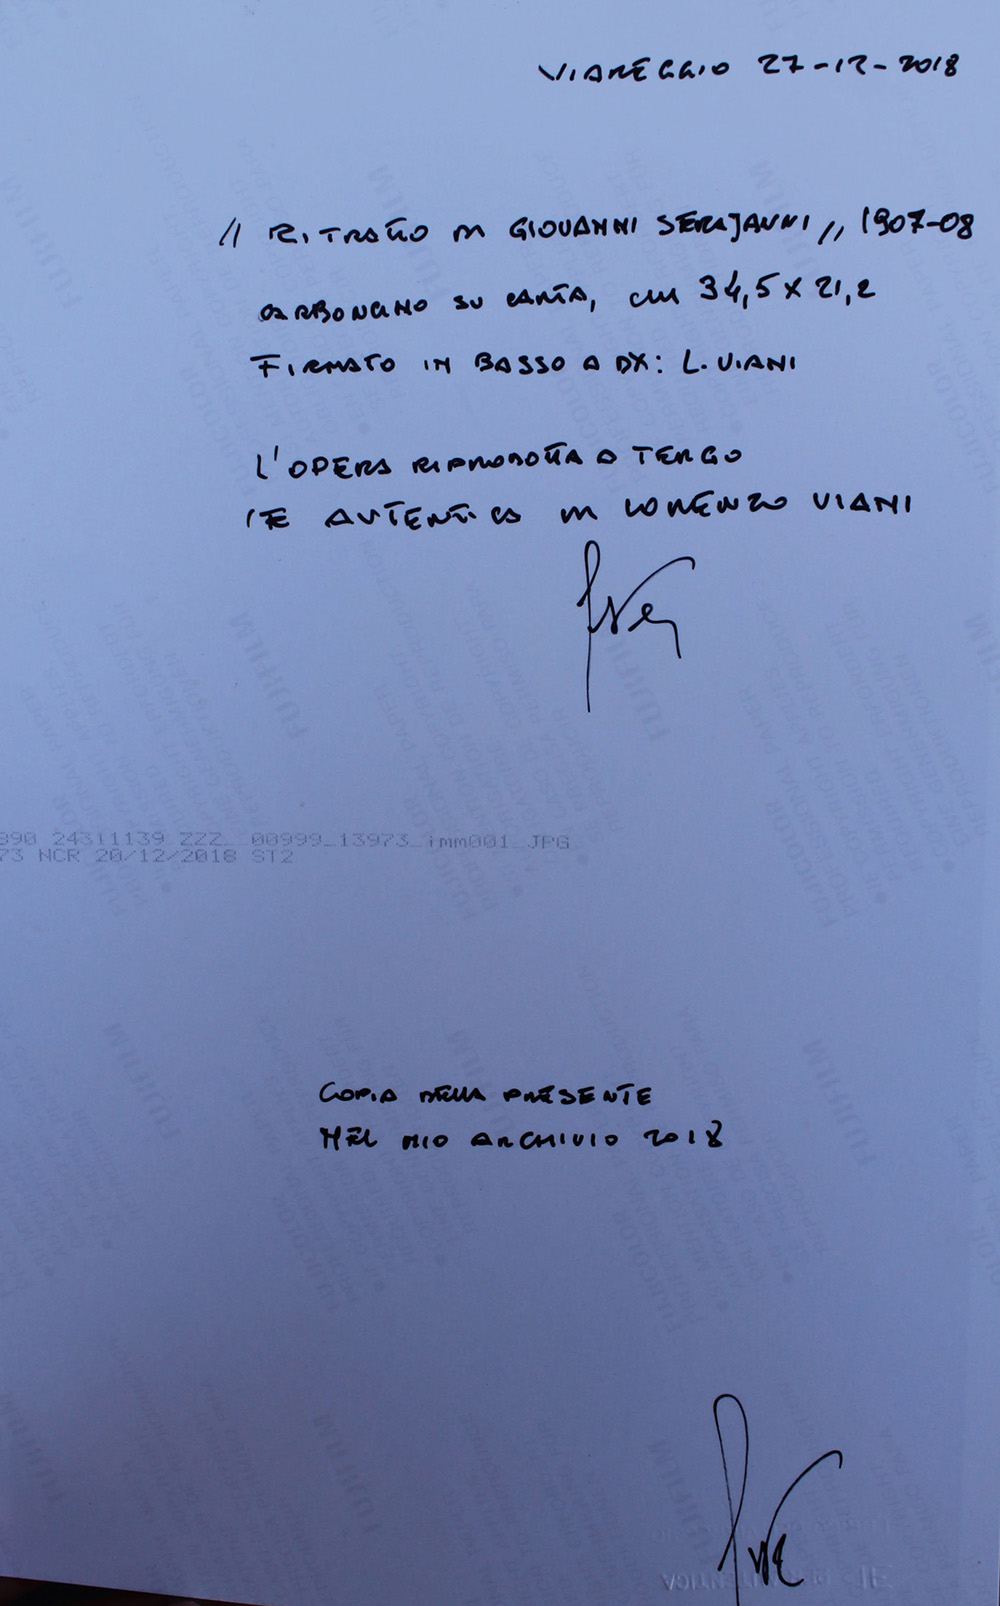 VIAREGGIO 27-12-2018
// RITRATTO DI GIOVANNI SERAJANNI // 1907-08
CARBONCINO SU CARTA, cm 34,5 X 21,2
FIRMATO IN BASSO A DX: L. VIANI
L'OPERA RIPRODOTTA A TERGO
E' AUTENTICA DI LORENZO VIANI
390 24311139 ZZZ 00999_13973_imm001_JPG
73 NCR 20/12/2018 ST2
COPIA DELLA PRESENTE
NEL MIO ARCHIVIO 2018